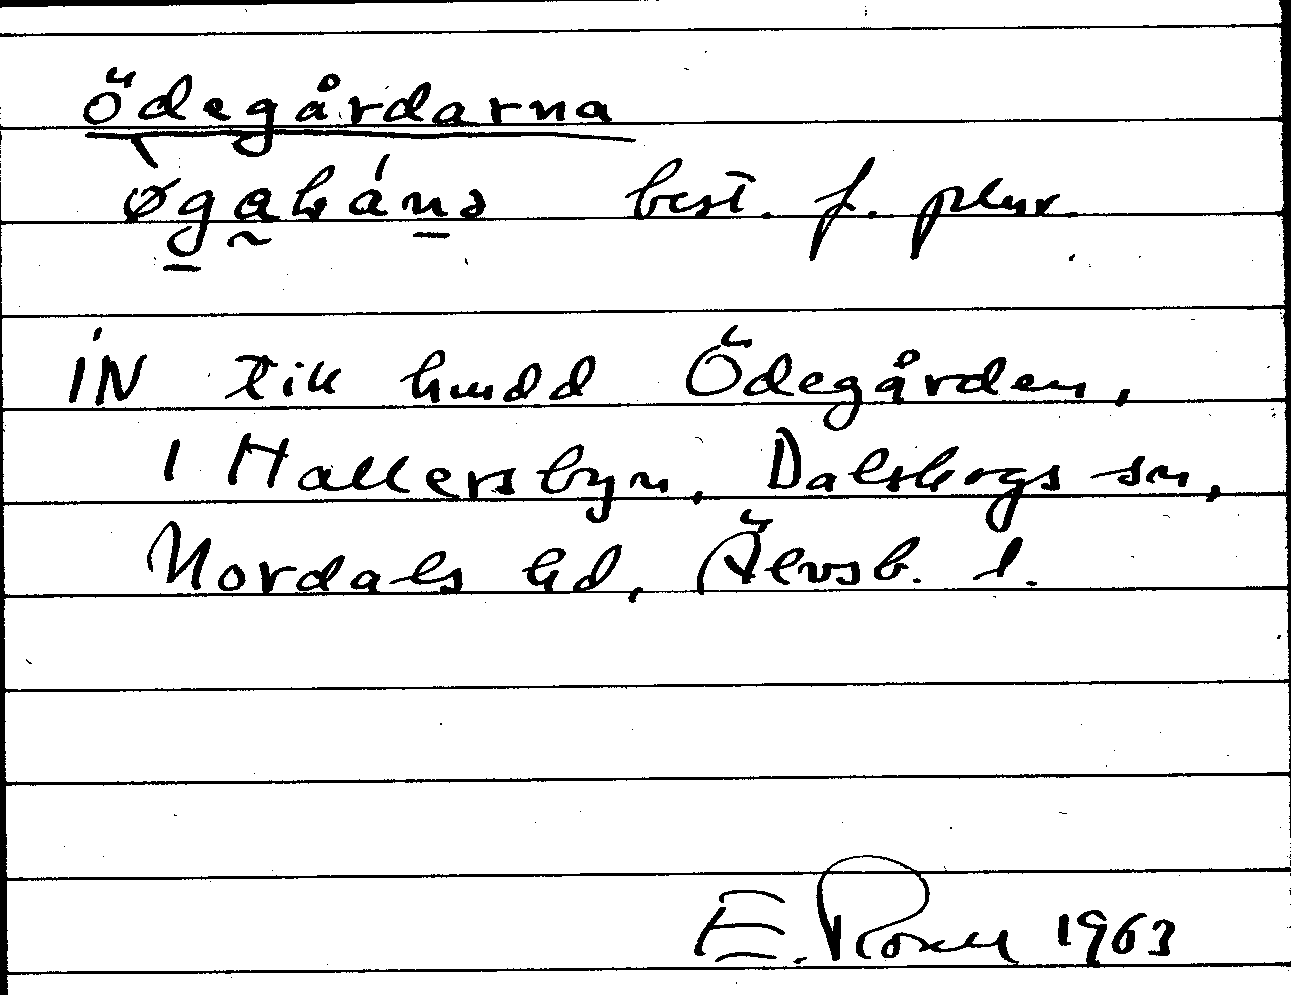 Ödegårdarna
best. f. plur.
IN till hmdd Ödegården,
i Hallersbyn, Dalskogs sn,
Nordals hd, Älvsb. l.
E. 1963